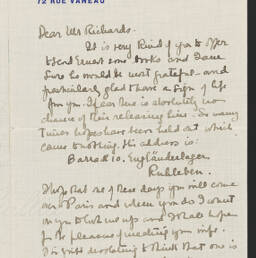 72 RUE VANEAU
Dear Mr Richards.
It is very kind of you to offer
to send Ernest some books and I am
sure he would be most grateful - and
particularly glad to have a sign of life
from you. I fear there is absolutely no
chance of their releasing him. So many
times hopes have been held out which
came to nothing. His address is:
Barrack 10. Engländerlager
Ruhleben.
I hope that one of these days you will come
to Paris and when you do I want
you to look me up and I also hope
for the pleasure of meeting your wife.
to think that one is